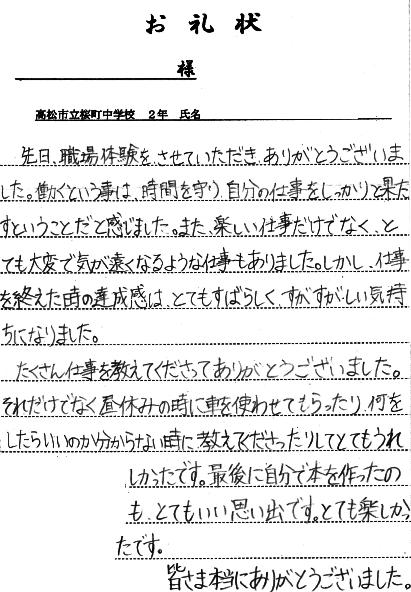 お礼状
様
高松市立桜町中学校 2年 氏名
先日、職場体験をさせていただき、ありがとうございま
した。働くという事は、時間を守り、自分の仕事をしっかりと果た
すということだと感じました。また、楽しい仕事だけでなく、と
ても大変で気が遠くなるような仕事もありました。しかし、仕事
を終えた時の達成感は、とてもすばらしく、すがすがしい気持
ちになりました。
たくさん仕事を教えてくださってありがとうございました。
それだけでなく昼休みの時に車を使わせてもらったり、何を
したらいいのか分からない時に教えてくださったりしてとてもうれ
しかったです。最後に自分で本を作ったの
も、とてもいい思い出です。とても楽しかっ
たです。
皆さま本当にありがとうございました。